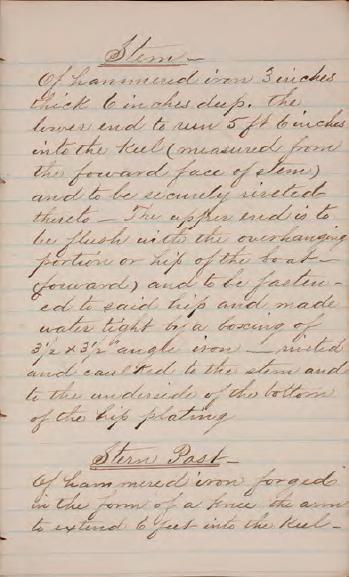 Stem —
Of hammered iron 3 inches
thick 6 inches deep. the
lower end to run 5 ft 6 inches
into the Keel (measured from
the foward face of stem)
and to be securely riveted
thereto — The upper end is to
be flush with the overhanging
portion or hip of the boat —
(foward) and to be fasten-
ed to said hip and made
water tight by a boxing of
3 1/2 x 3 1/2" angle iron — riveted
and caulked to the stem and
to the underside of the bottom
of the hip plating
Stern Post —
Of hammered iron forged
in the form of a knee the arm
to extend 6 feet into the Keel —